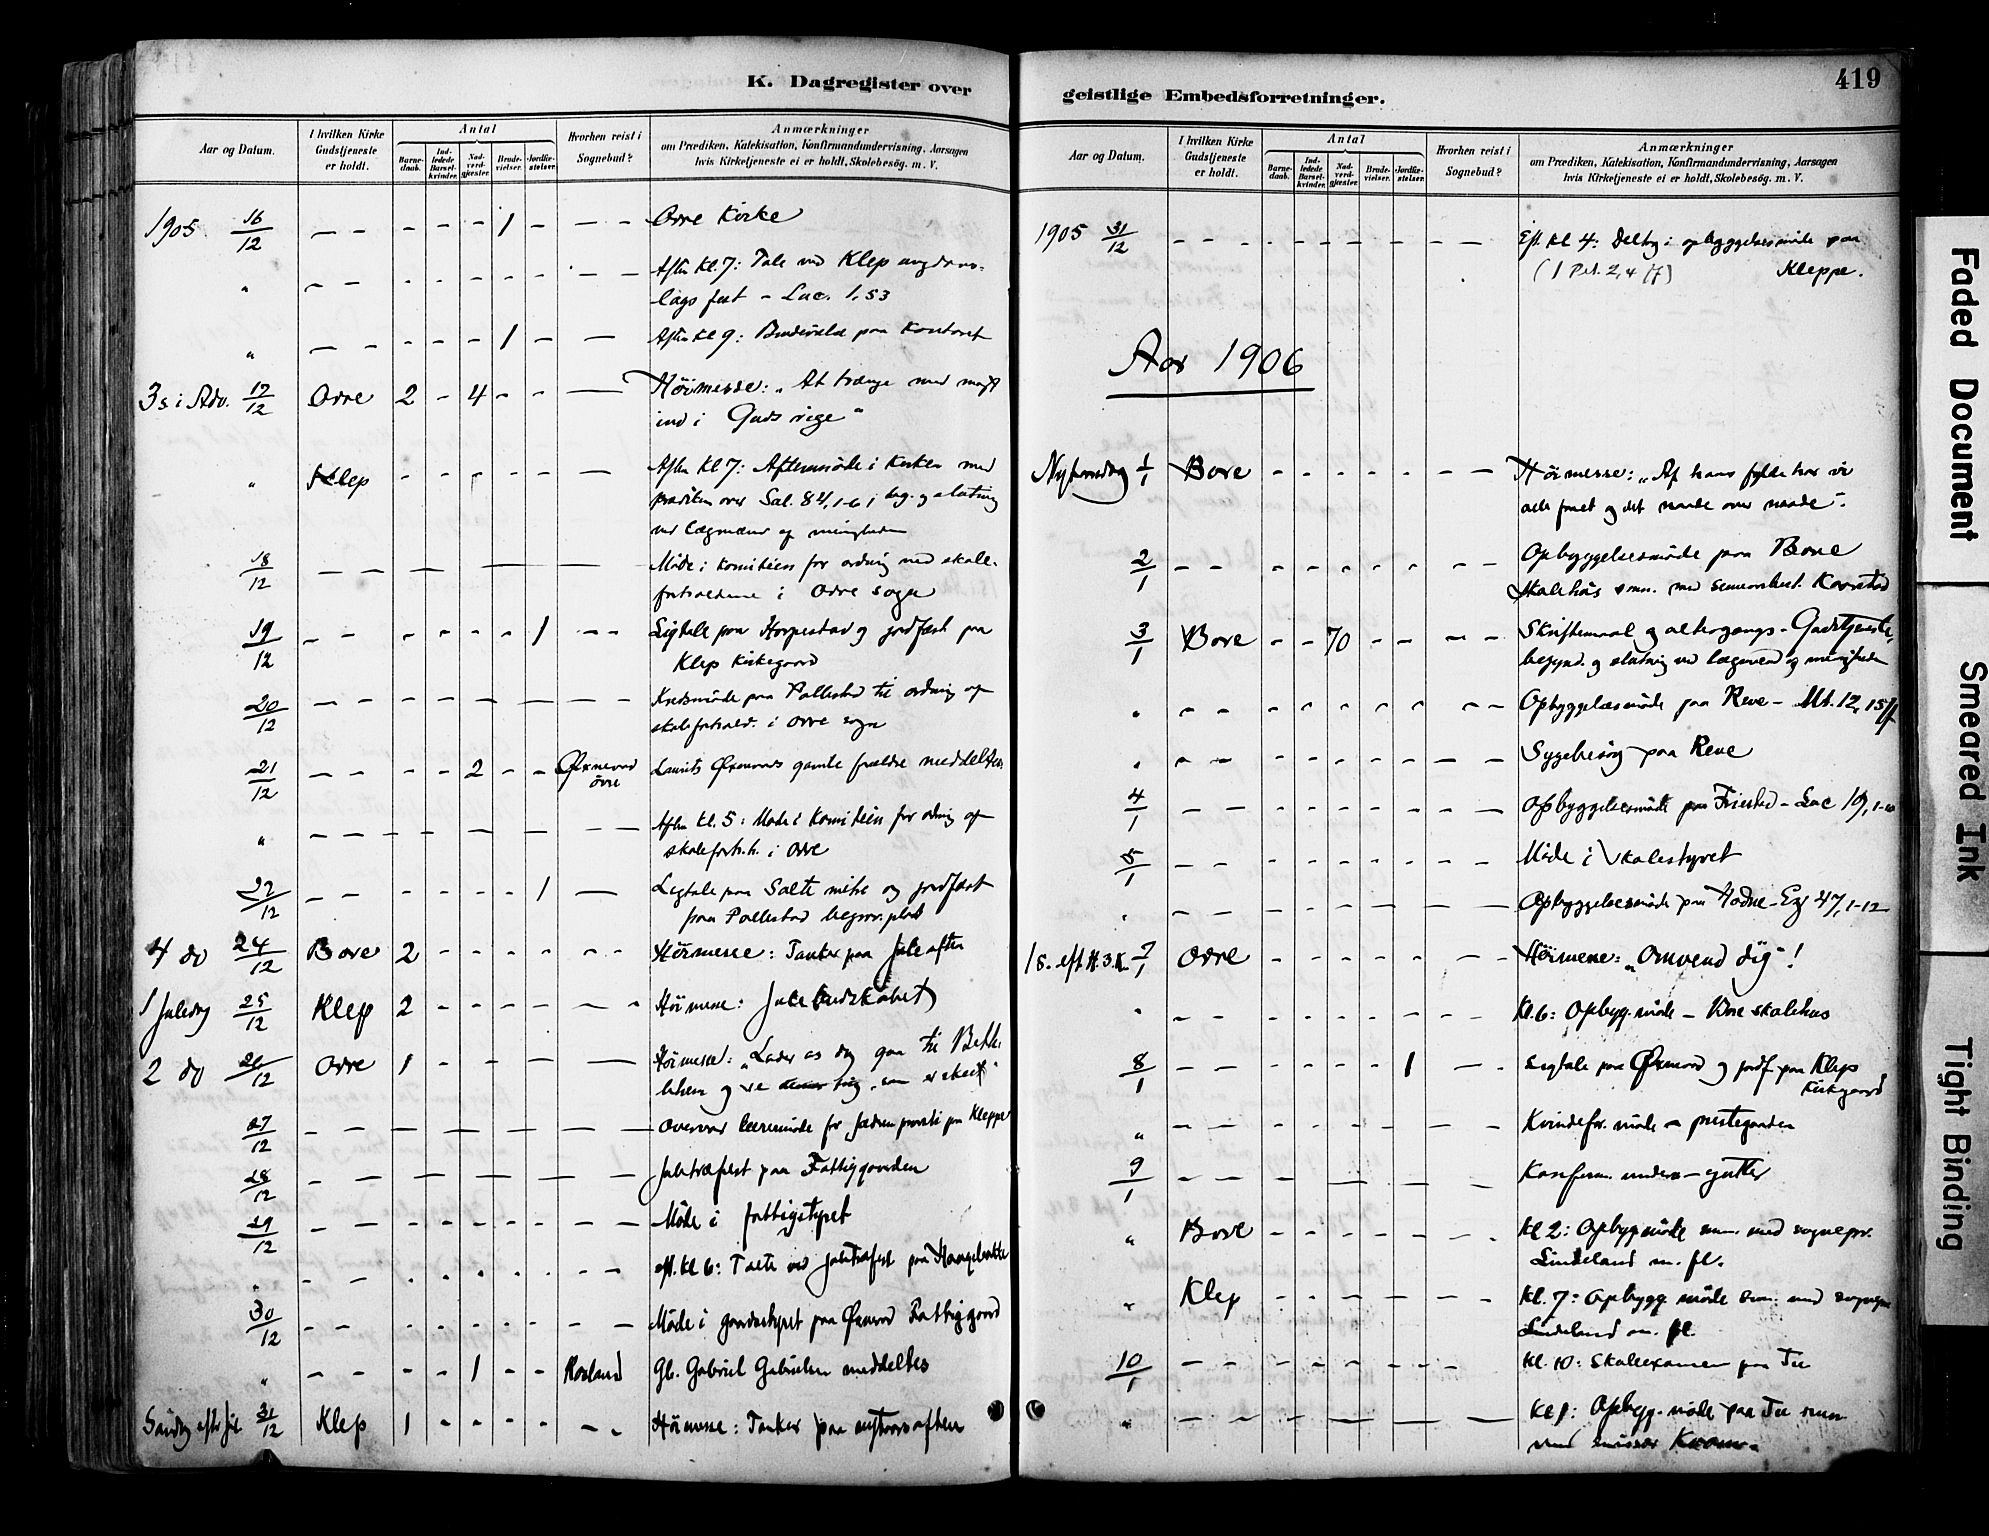 K. Dagregister over
Aar og Datum.
I hvilken Kirke Gudstjeneste er holdt.
Antal
Barne-daab.
Ind-ledede Barsel-kvinder.
Nad-verd-gjæster.
Brude-vielser.
Jordfæ-stelser.
Hvorhen reist i Sognebud?
Anmærkninger
om Prædiken, Katekisation, Konfirmandundervisning, Aarsagen
hvis Kirketjeneste ei er holdt, Skolebesøg. m. V.
1905 16/12 - - - - - 1 - - - Orre Kirke
" - - - - - - - - - Aften Kl. 7: Tale ved Klep ungdoms-
lags fest - Luc. 1,53
" - - - - - 1 - - Aften Kl 9: paa Kontoret
3 s i Adv. 17/12 Orre 2 - 4 - - - Høimesse: "At trænge med magt
ind i Guds rige"
" Klep - - - - - - Aften Kl 7: Aftenmøde i Kirken med
prædiken over Sal. 84,1-6; beg. og slutning
ved Lægmænd og menigheden
18/12 - - - - - - Møde i Komiteen for ordning med skole-
i Orre sogn
19/12 - - - - - - 1 - - Ligtale paa Horpestad og jordfæst paa
Klep Kirkegaard
20/12 - - - - - - - - - Kredsmøde paa Pollestad til ordning af
i Orre sogn
21/12 - - - - 2 - - Øxnevad øvre Laurits Øxnevads gamle forældre meddeltes
" - - - - - - - - Aften Kl. 5: Møde i Komiteen for ordning af
i Orre
22/12 - - - - - - 1 - Ligtale paa Salte nitre og jordfæst
paa Pollestad begrav.plads
4 do 24/12 Bore 2 - - - - - - Høimesse: Tanker paa Juleaften
1 Juledag 25/12 Klep 2 - - - - - - Høimesse: Julebudskabet
2 do 26/12 Orre 1 - - - - - Høimesse: "Lader os dog gaa til Beth-
lehem og se , som er skeet"
27/12 - - - - - - - - Overvar læremøde for Jæderens provsti paa Kleppe
28/12 - - - - - - - Juletræfest paa Fattiggaarden
29/12 - - - - - - - - - Møde i fattigstyret
" - - - - - - - - - eft. kl 6: Talte ved juletræfest paa
30/12 - - - - - - - - - Møde i gaardsstyret paa Øxnevad Fattiggaard
" - - - - 1 - - Roaland Gb. Gabriel Gabrielsen meddeltes
Søndag efter jul 31/12 Klep 1 - - - - - - Høimesse: Tanker paa nytaarsaften
geistlige Embedsforretninger.
419
Aar og Datum.
I hvilken Kirke Gudstjeneste er holdt.
Antal
Barne-daab.
Ind-ledede Barsel-kvinder.
Nad-verd-gjæster.
Brude-vielser.
Jordfæ-stelser.
Hvorhen reist i Sognebud?
Anmærkninger
om Prædiken, Katekisation, Konfirmandundervisning, Aarsagen
hvis Kirketjeneste ei er holdt, Skolebesøg. m. V.
1905 31/12 - - - - - - - - - Eft. Kl 4: Deltog i opbyggelsesmøde paa
(1 Pet. 2,4 ff) Kleppe.
Aar 1906
Nytaarsdag 1/1 Bore - - - - - - - Høimesse: "Af hans fylde har vi
alle faaet og det naade over naade".
2/1 - - - - - - - - - Opbyggelsesmøde paa Bore
Skolehus smn. med
3/1 Bore - - 70 - - - - Skriftemaal og altergangs-Gudstjeneste,
begynd. og slutning ved lægmænd og menigheden
" - - - - - - - - - Opbyggelsesmøde paa Reve - Mt. 12, 15 ff
" - - - - - - - - - Sygebesøg paa Reve
4/1 - - - - - - - - - Opbyggelsesmøde paa Friestad - Luc 19, 1-10
5/1 - - - - - - - - - Møde i skolestyret
" - - - - - - - - - Opbyggelsesmøde paa Hodne - Ez 47, 1-12
1 s. eft. H. 3 K. 7/1 Orre - - - - - - - Høimesse: "Omvend dig"!
" - - - - - - - - - Kl. 6: Opbyg. møde - Bore skolehus
8/1 - - - - - - 1 - - Ligtale paa Øxnevad og jordf. paa Klep
Kirkegaard
" - - - - - - - - - Kvindefor. møde - prestegaarden
9/1 - - - - - - - Konfirm. underv. - gutter
" Bore - - - - - - - Kl 2: Opbyg.møde smn. med sognepr.
Lindeland m. fl.
" Klep - - - - - - - Kl. 7: Opbygg. møde smn. med sognepr
Lindeland m. fl.
10/1 - - - - - - - - - Kl. 10: Skoleexamen paa Tu
" - - - - - - - - - Kl 1: Opbygg. møde paa Tu smn
med
Faded Document
Smeared Ink
Tight Binding